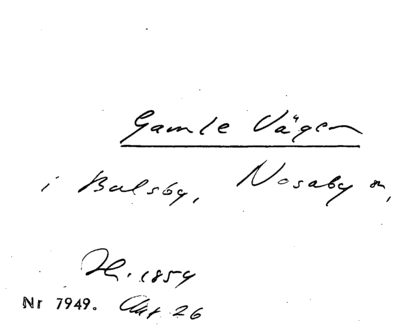 Gamle Vägen
i Balsby, Nosaby sn,
H. 1854
Nr 7949. Akt 26